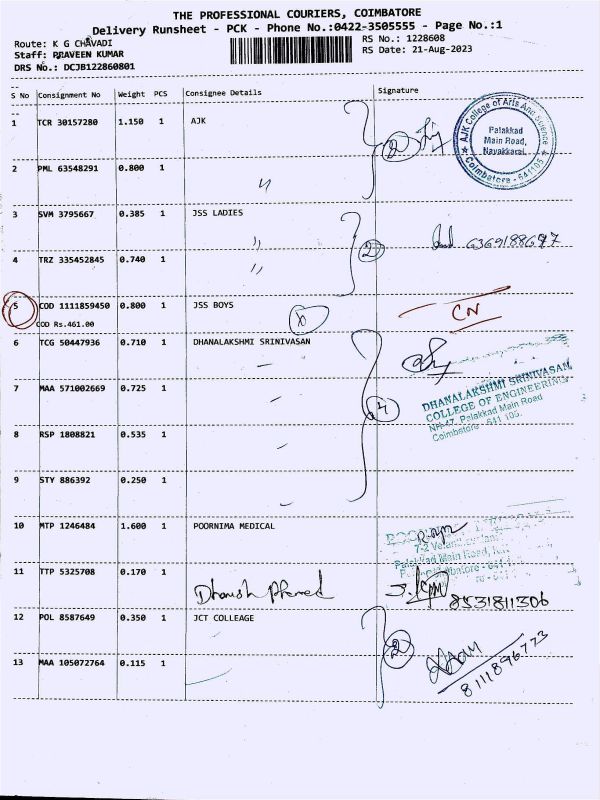 THE PROFESSIONAL COURIERS, COIMBATORE
Delivery Runsheet - PCK - Phone No.:0422-3505555 - Page No.:1
Route: K G CHAVADI
RS No.: 1228608
Staff: PRAVEEN KUMAR
RS Date: 21-Aug-2023
DRS No.: DCJB122860801
S No Consignment No Weight PCS Consignee Details Signature
1 TCR 30157280 1.150 1 AJK
AJK College of Arts And Science
Palakkad
Main Road,
Navakkarai,
Coimbatore - 641105
2 PML 63548291 0.800 1 〃
3 SVM 3795667 0.385 1 JSS LADIES
〃 2
4 TRZ 335452845 0.740 1 〃
5 COD 1111859450 0.800 1 JSS BOYS CN
COD Rs.461.00
6 TCG 50447936 0.710 1 DHANALAKSHMI SRINIVASAN
7 MAA 571002669 0.725 1
DHANALAKSHMI SRINIVASAN
COLLEGE OF ENGINEERING
NH-47, Palakkad Main Road
Coimbatore - 641 105.
8 RSP 1808821 0.535 1
9 STY 886392 0.250 1
10 MTP 1246484 1.600 1 POORNIMA MEDICAL
Palakkad Main Road,
11 TTP 5325708 0.170 1
8531811306
12 POL 8587649 0.350 1 JCT COLLEAGE
13 MAA 105072764 0.115 1
8111896773